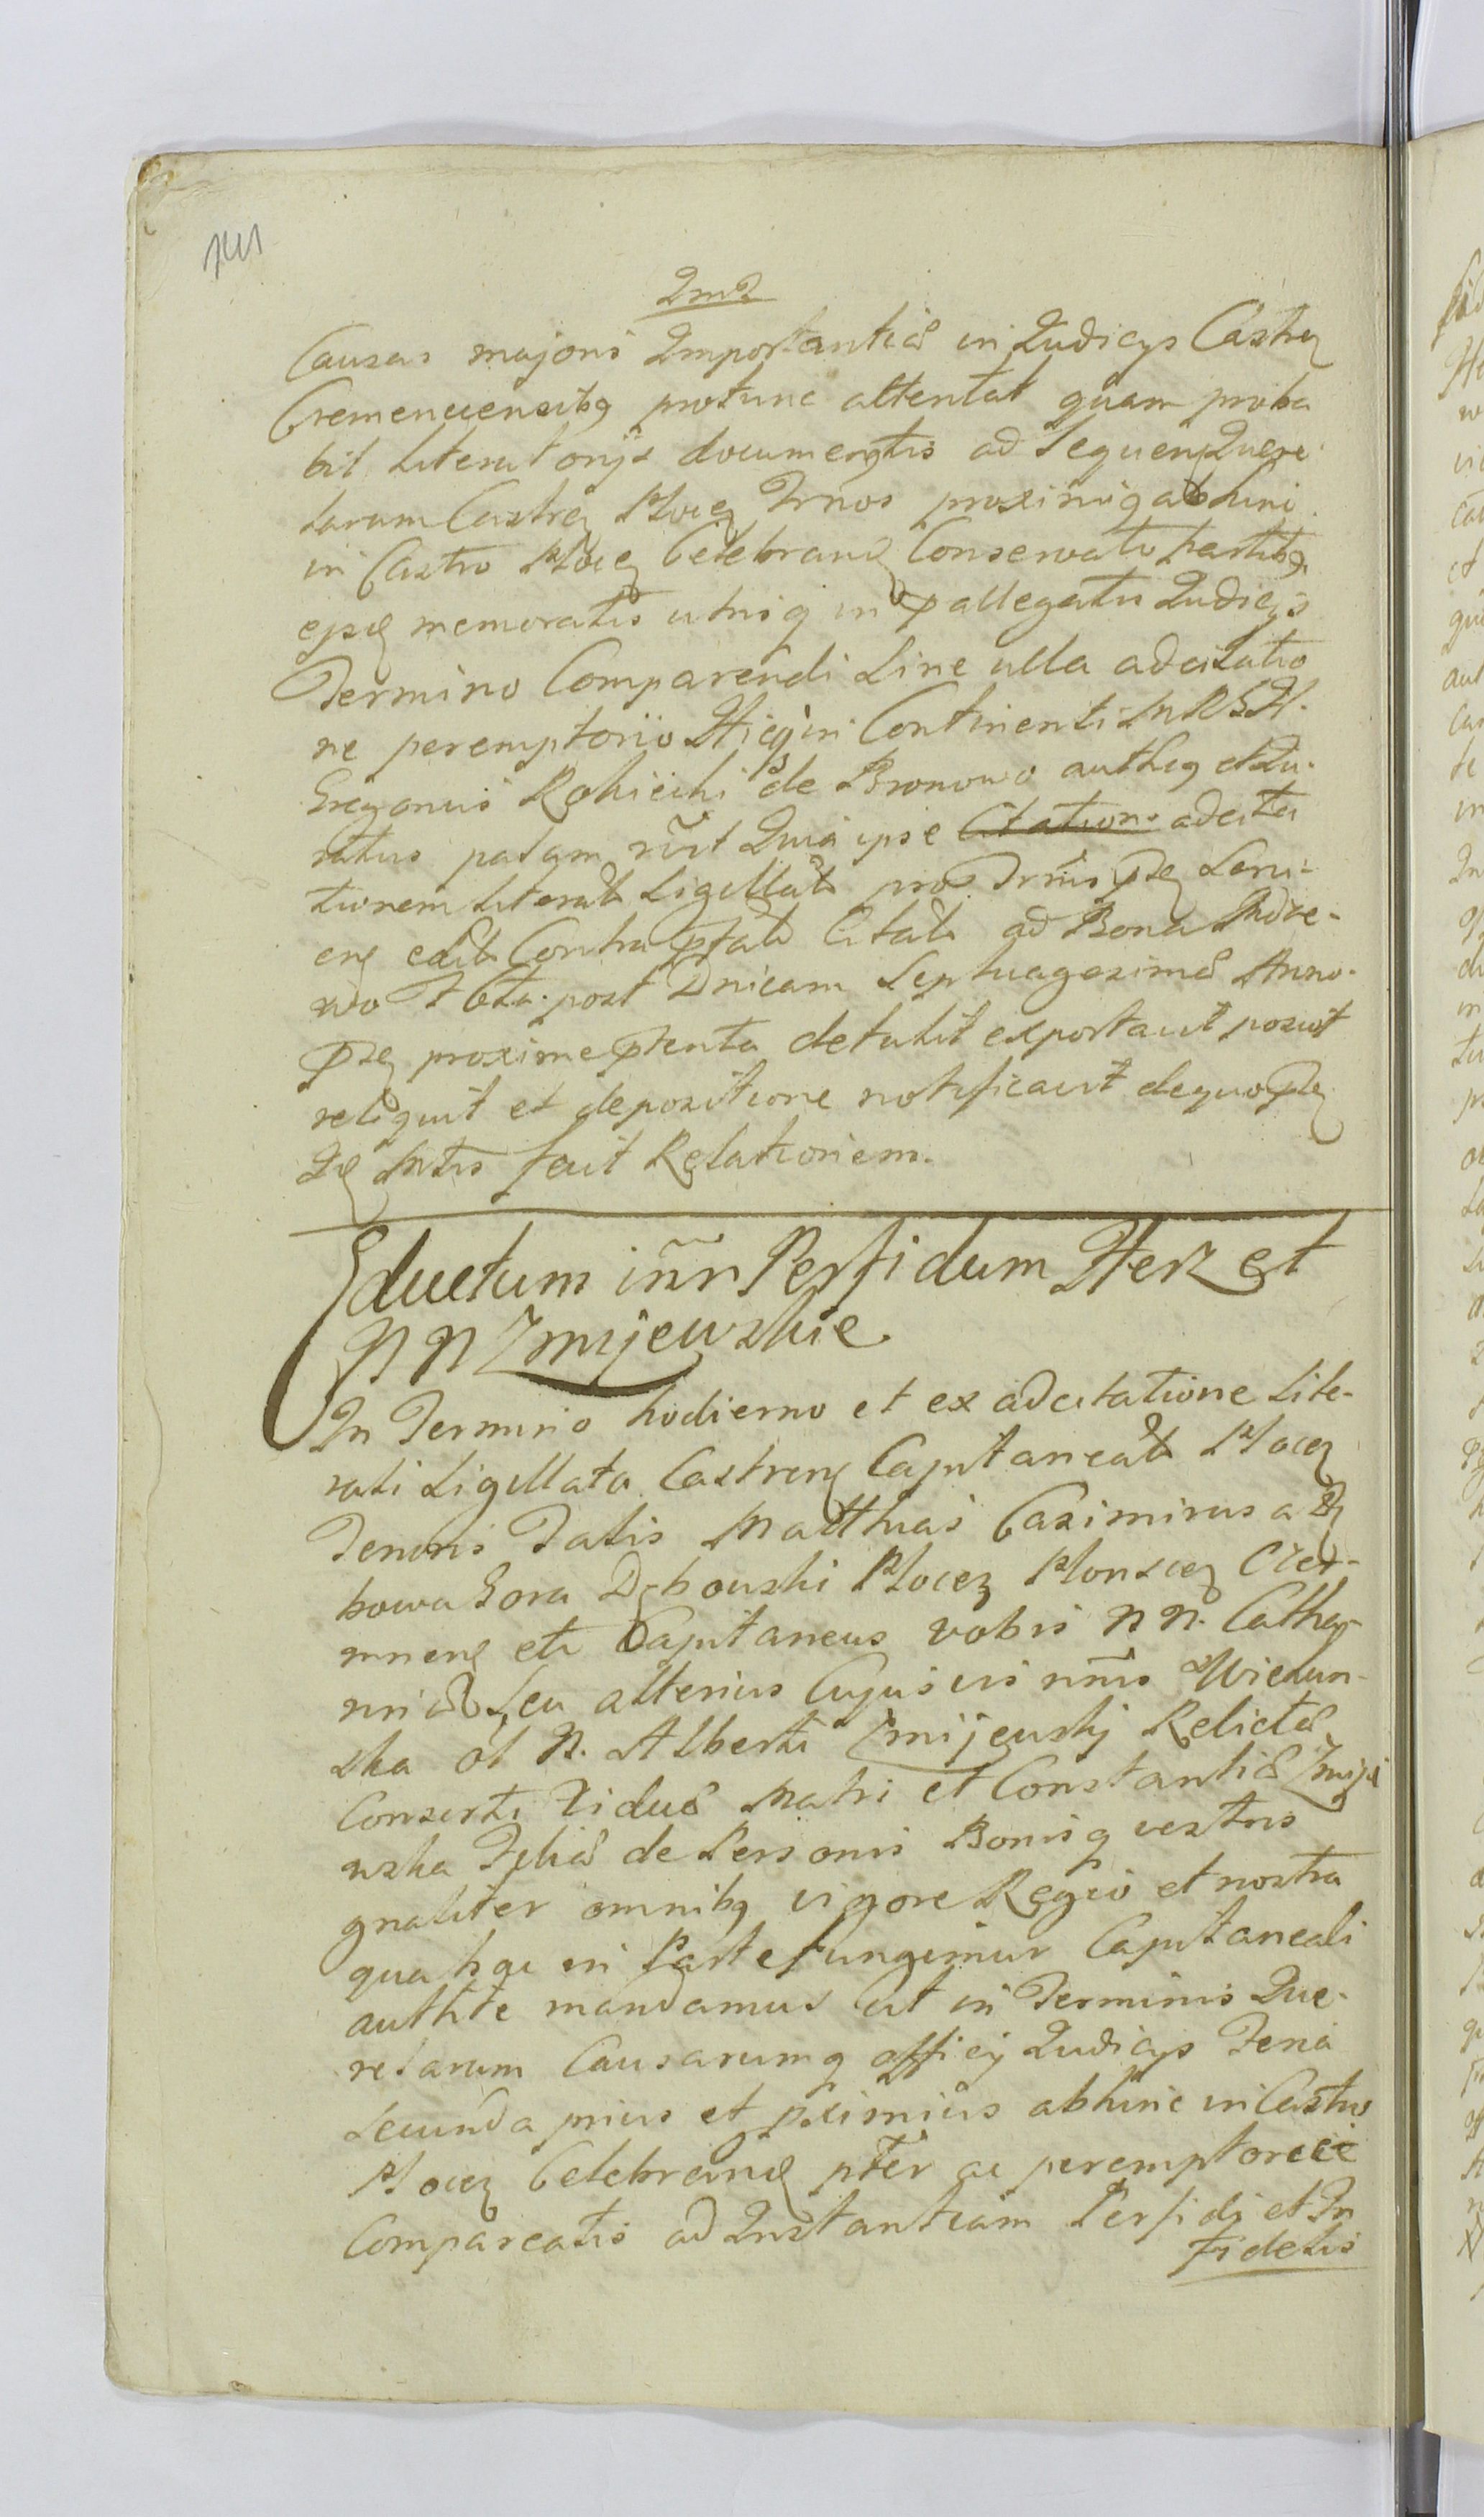 141
2md
Causas majoris Importantiæ in Judicys Castren
Cremenecensibq protunc attentat quam proba
bit Literatorijs documentis ad Sequen Quere
larum Castren Plocen Trnos proximiq abhinc
in Castro Plocen Celebrand Conservato Partibq
ejsd memoratis utrisq in pallegatis Judicys
Termino Comparendi Sine ulla adcitatio
ne peremptorio Hicq in Continenti
Gregorius Rokicki de Bronowo autheq et Ju-
ratus palam rñt Quia ipse Citation adcita
tionem Literal Sigillat pro Trmis pn Servi-
en edit Contra pfat Citat ad Bona Mdze-
wo F 6ta post Dnicam Septuagesimæ Anno
pn proxime pterita detulit exportavit posuit
reliquit et depositione notificavit dequo
fecit Relationem.
Eductum iñr Perfidum Herz et
NN Zmijewskie
In Termino hodierno et ex adcitatione Lite-
rali Sigillata Castren Capitaneali Plocen
Tenoris Talis Matthias Casimirus a
bowa Gora Dębowski Plocen Plonscen Cier-
mnen etc Capitaneus vobis NN. Catha-
rinæ Seu alterius Cujusvis nñis Wielun-
ska ol N. Alberti Zmijewskj Relictæ
Consorti Viduæ Matri et Constantiæ Zmije
wska Filiæ de Personis Bonisq vestris
gnaliter omnibq vigore Regio et nostra
qua hac in Parte fungimur Capitaneali
authte mandamus Ut in Terminis Que-
relarum Causarumq officij Judicys Feria
Secunda prius et pximius abhinc in Castro
Plocen Celebrand pter ac peremptorie
Compareatis ad Instantiam Perfidi et In
fidelis